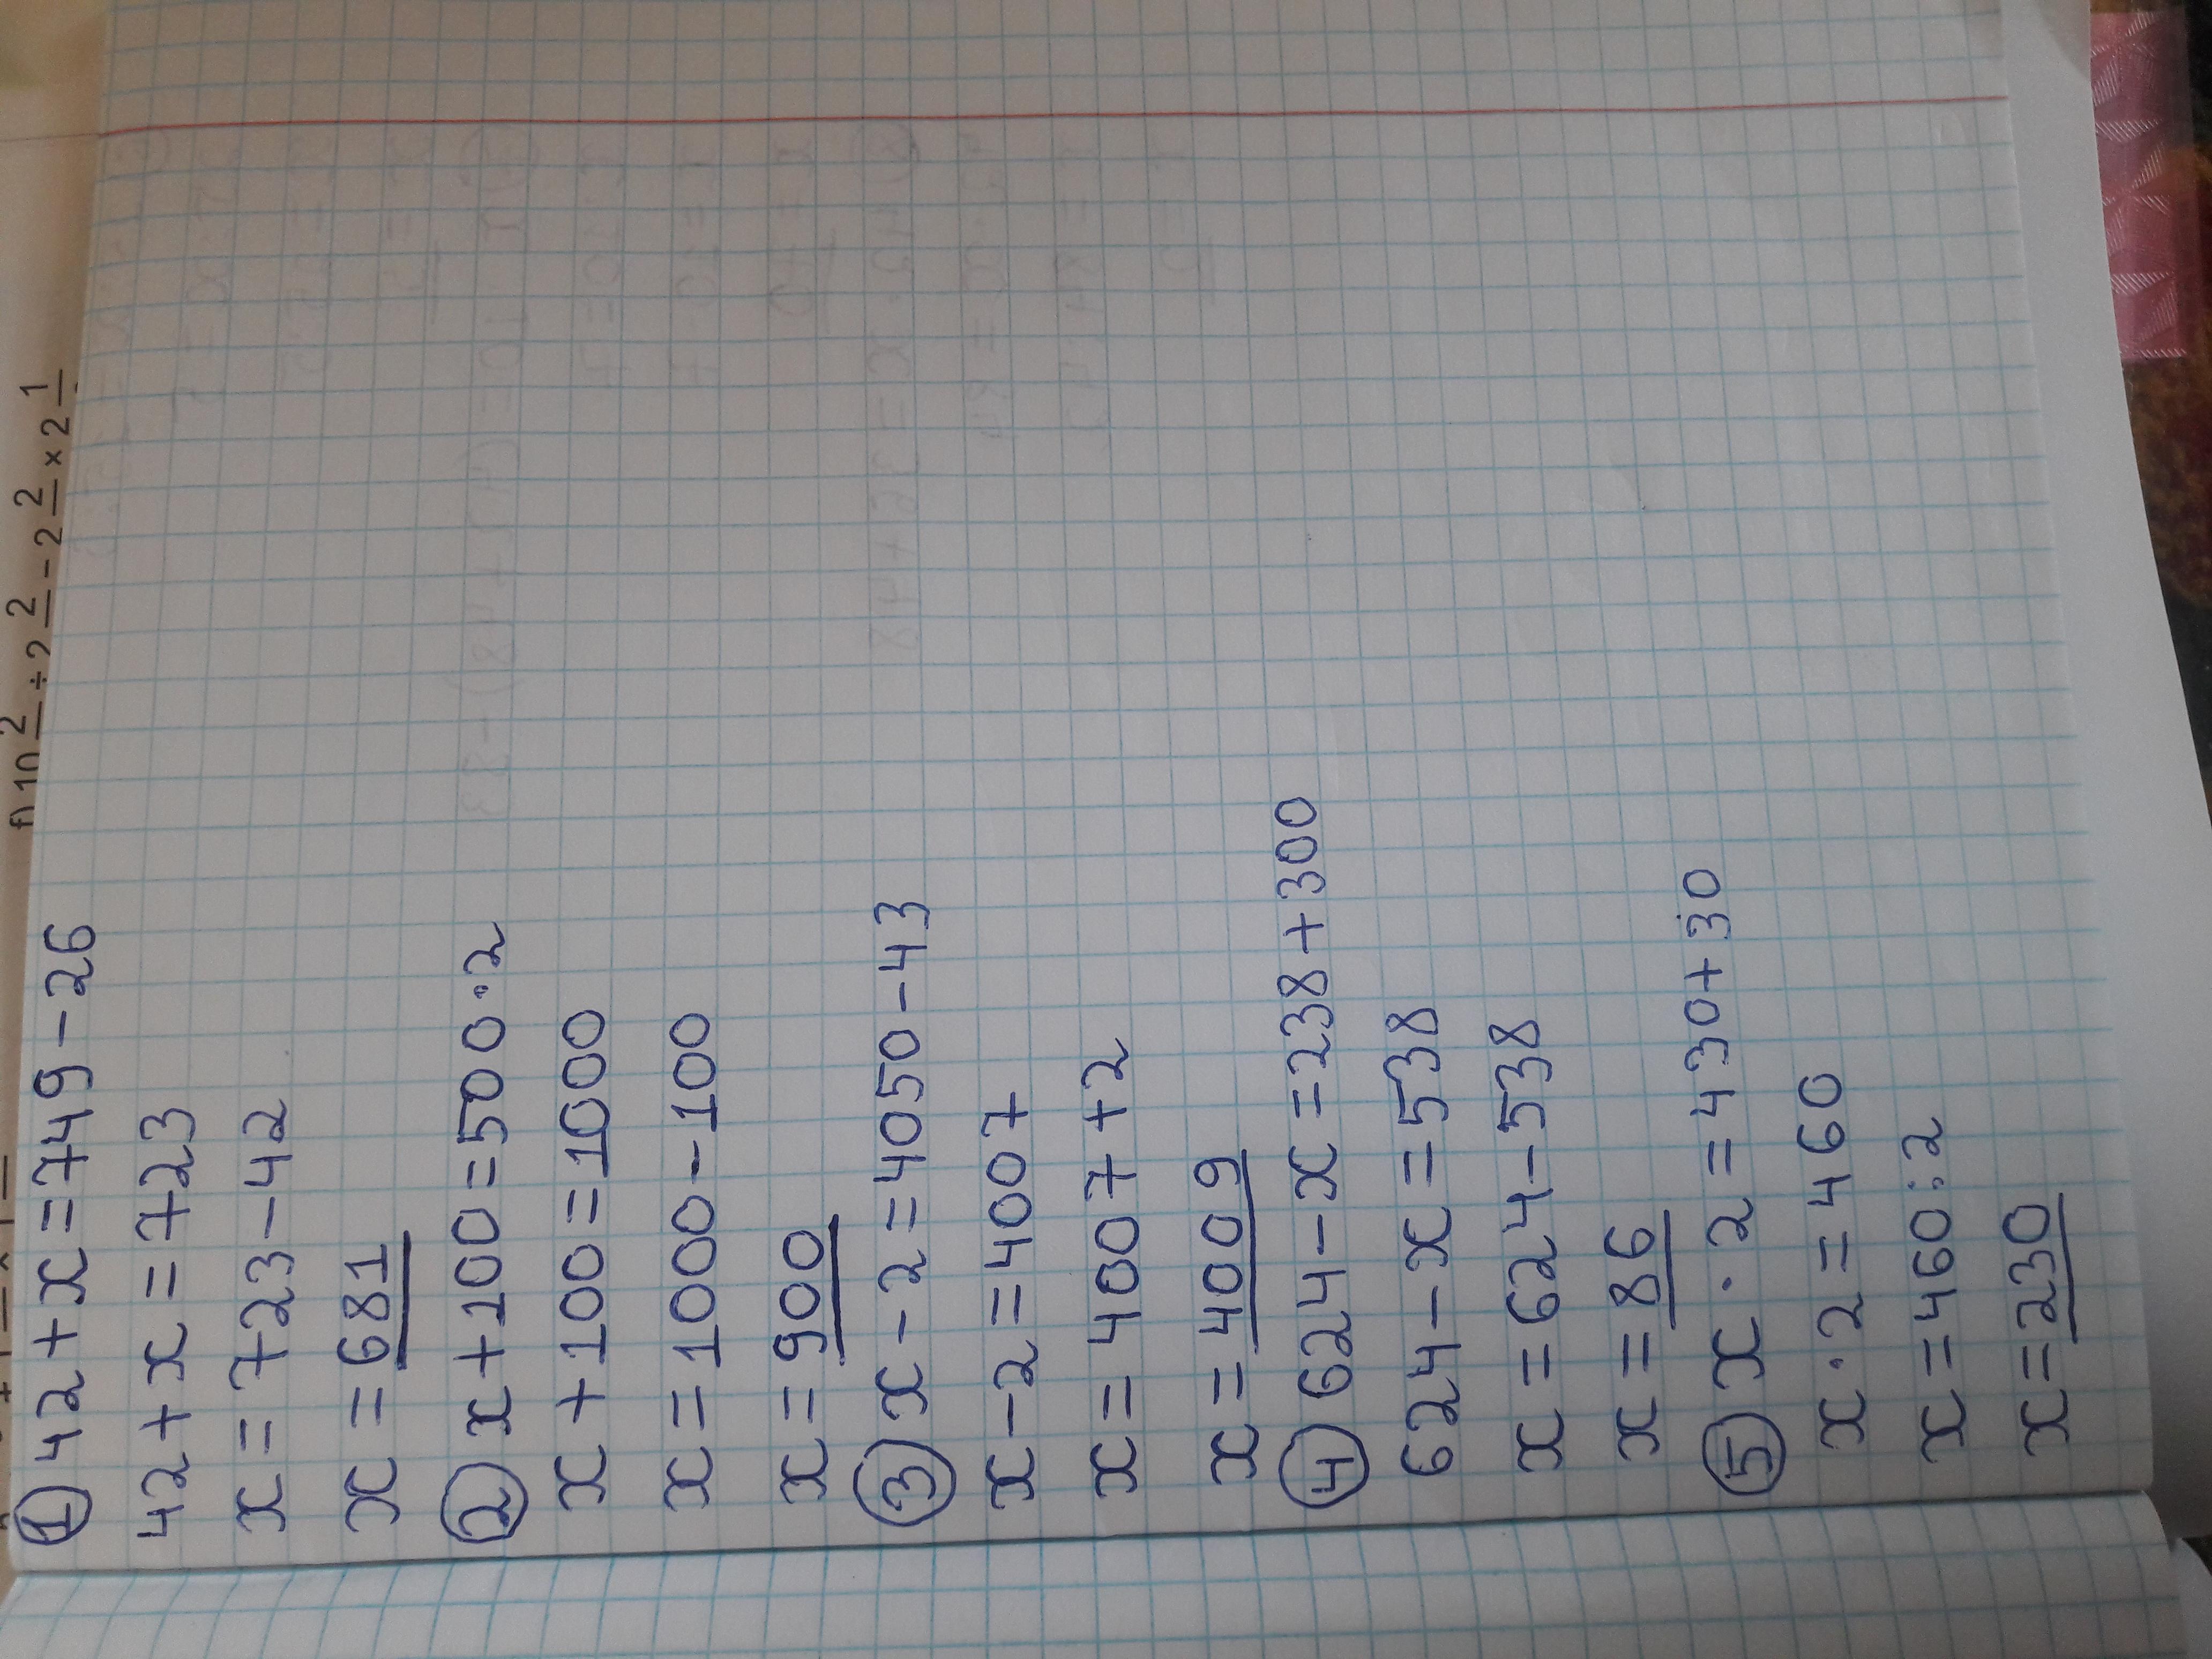 f) 10 2 ÷ 2 2 - 2 2 × 2 1
① 42+x=749-26
42+x=723
x=723-42
x=681
② x+100=500·2
x+100=1000
x=1000-100
x=900
③ x-2=4050-43
x-2=4007
x=4007+2
x=4009
④ 624-x=238+300
624-x=538
x=624-538
x=86
⑤ x·2=430+30
x·2=460
x=460:2
x=230